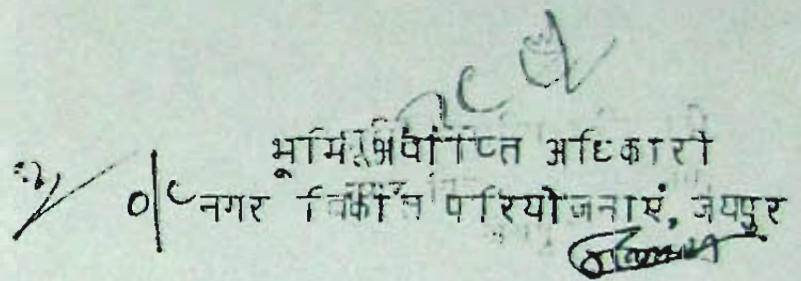 भूमि अवाप्ति अधिकारी
o/c नगर विकास परियोजनाएं, जयपुर